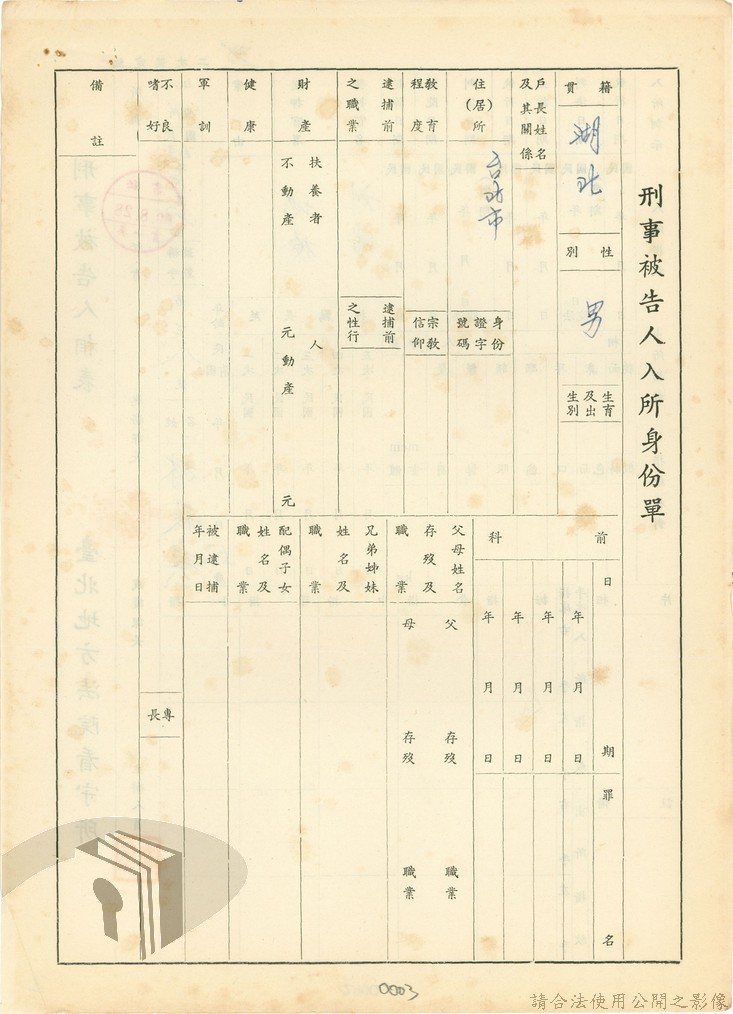 刑事被告人入所身份單
籍貫
湖北
性別
男
生育及出生別
戶長姓名及其關係
住(居)所
台北市
身份證字號碼
教育程度
宗教信仰
逮捕前之職業
逮捕前之性行
財產
扶養者 人
不動產 元動產 元
健康
軍訓
不良嗜好
專長
備註
前科
日期
罪名
年 月 日
年 月 日
年 月 日
年 月 日
父母姓名
存歿及
職業
父 存歿 職業
母 存歿 職業
兄弟姊妹
姓名及
職業
配偶子女
姓名及
職業
被逮捕
年月日
刑事被告人相表
臺北地方法院看守所
0003
請合法使用公開之影像